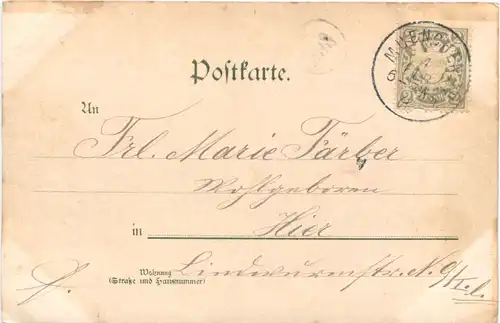 MUENCHEN
Postkarte.
An
Frl. Marie Färber
Wohlgeboren
in Hier
Wohnung
(Straße und Hausnummer)
Lindwurmstr. N.